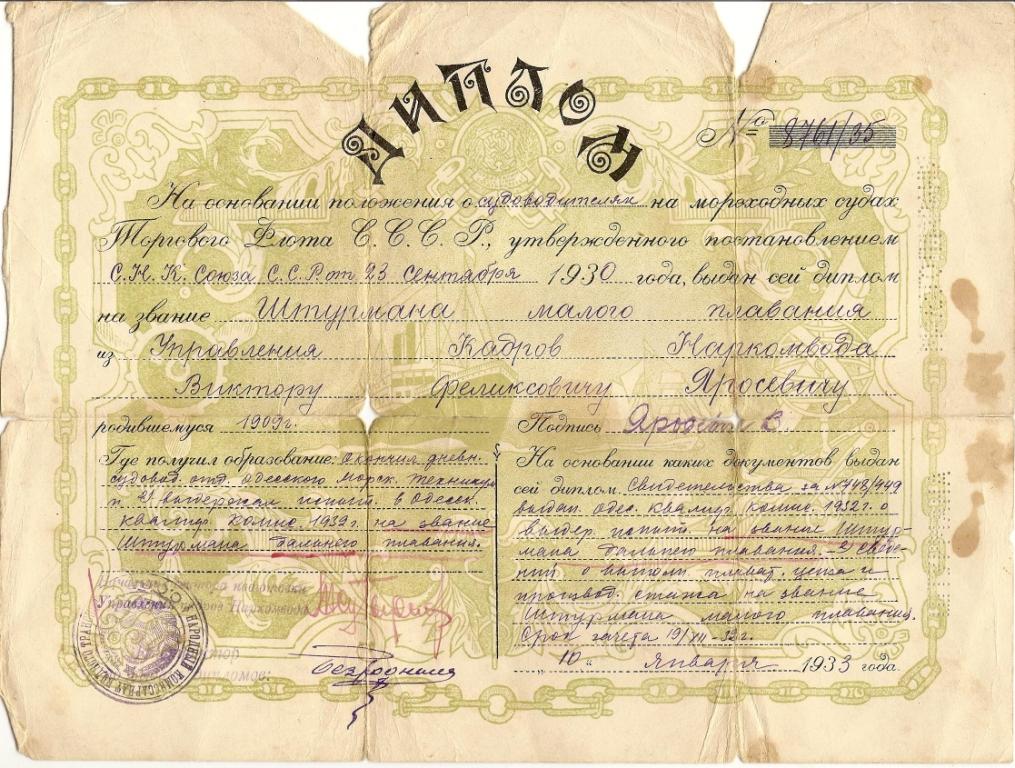 ДИПЛОМ
№ 8761/35
На основании положения о судоводителях на мореходных судах
Торгового Флота С.С.С.Р., утвержденного постановлением
С.Н.К. Союза С.С.Р от 23 Сентября 1930 года, выдан сей диплом
на звание Штурмана малого плавания
из Управления Кадров Наркомвода
Виктору Феликсовичу Яросевичу
родившемуся 1909г.
Подпись
Где получил образование: Окончил дневн.
судовод. отд. Одесского морск. техникума
и выдержал испыт. в Одесск.
квалиф. комис. на звание
Штурмана дальнего плавания.
На основании каких документов выдан
сей диплом. Свидетельства за № 748/949
выдан. Одес. квалиф. комис. 1932г. о
выдер. испыт. на звание Штур-
мана дальнего плавания. 2) Сведе-
ний о выполн. плават. ценза и
производ. стажа на звание
Штурмана малого плавания.
Срок зачета 19/XII-32г.
"10" января 1933 года.
Управления кадров Наркомвода
НАРОДНЫЙ КОМИССАРИАТ ВОДНОГО ТРАН